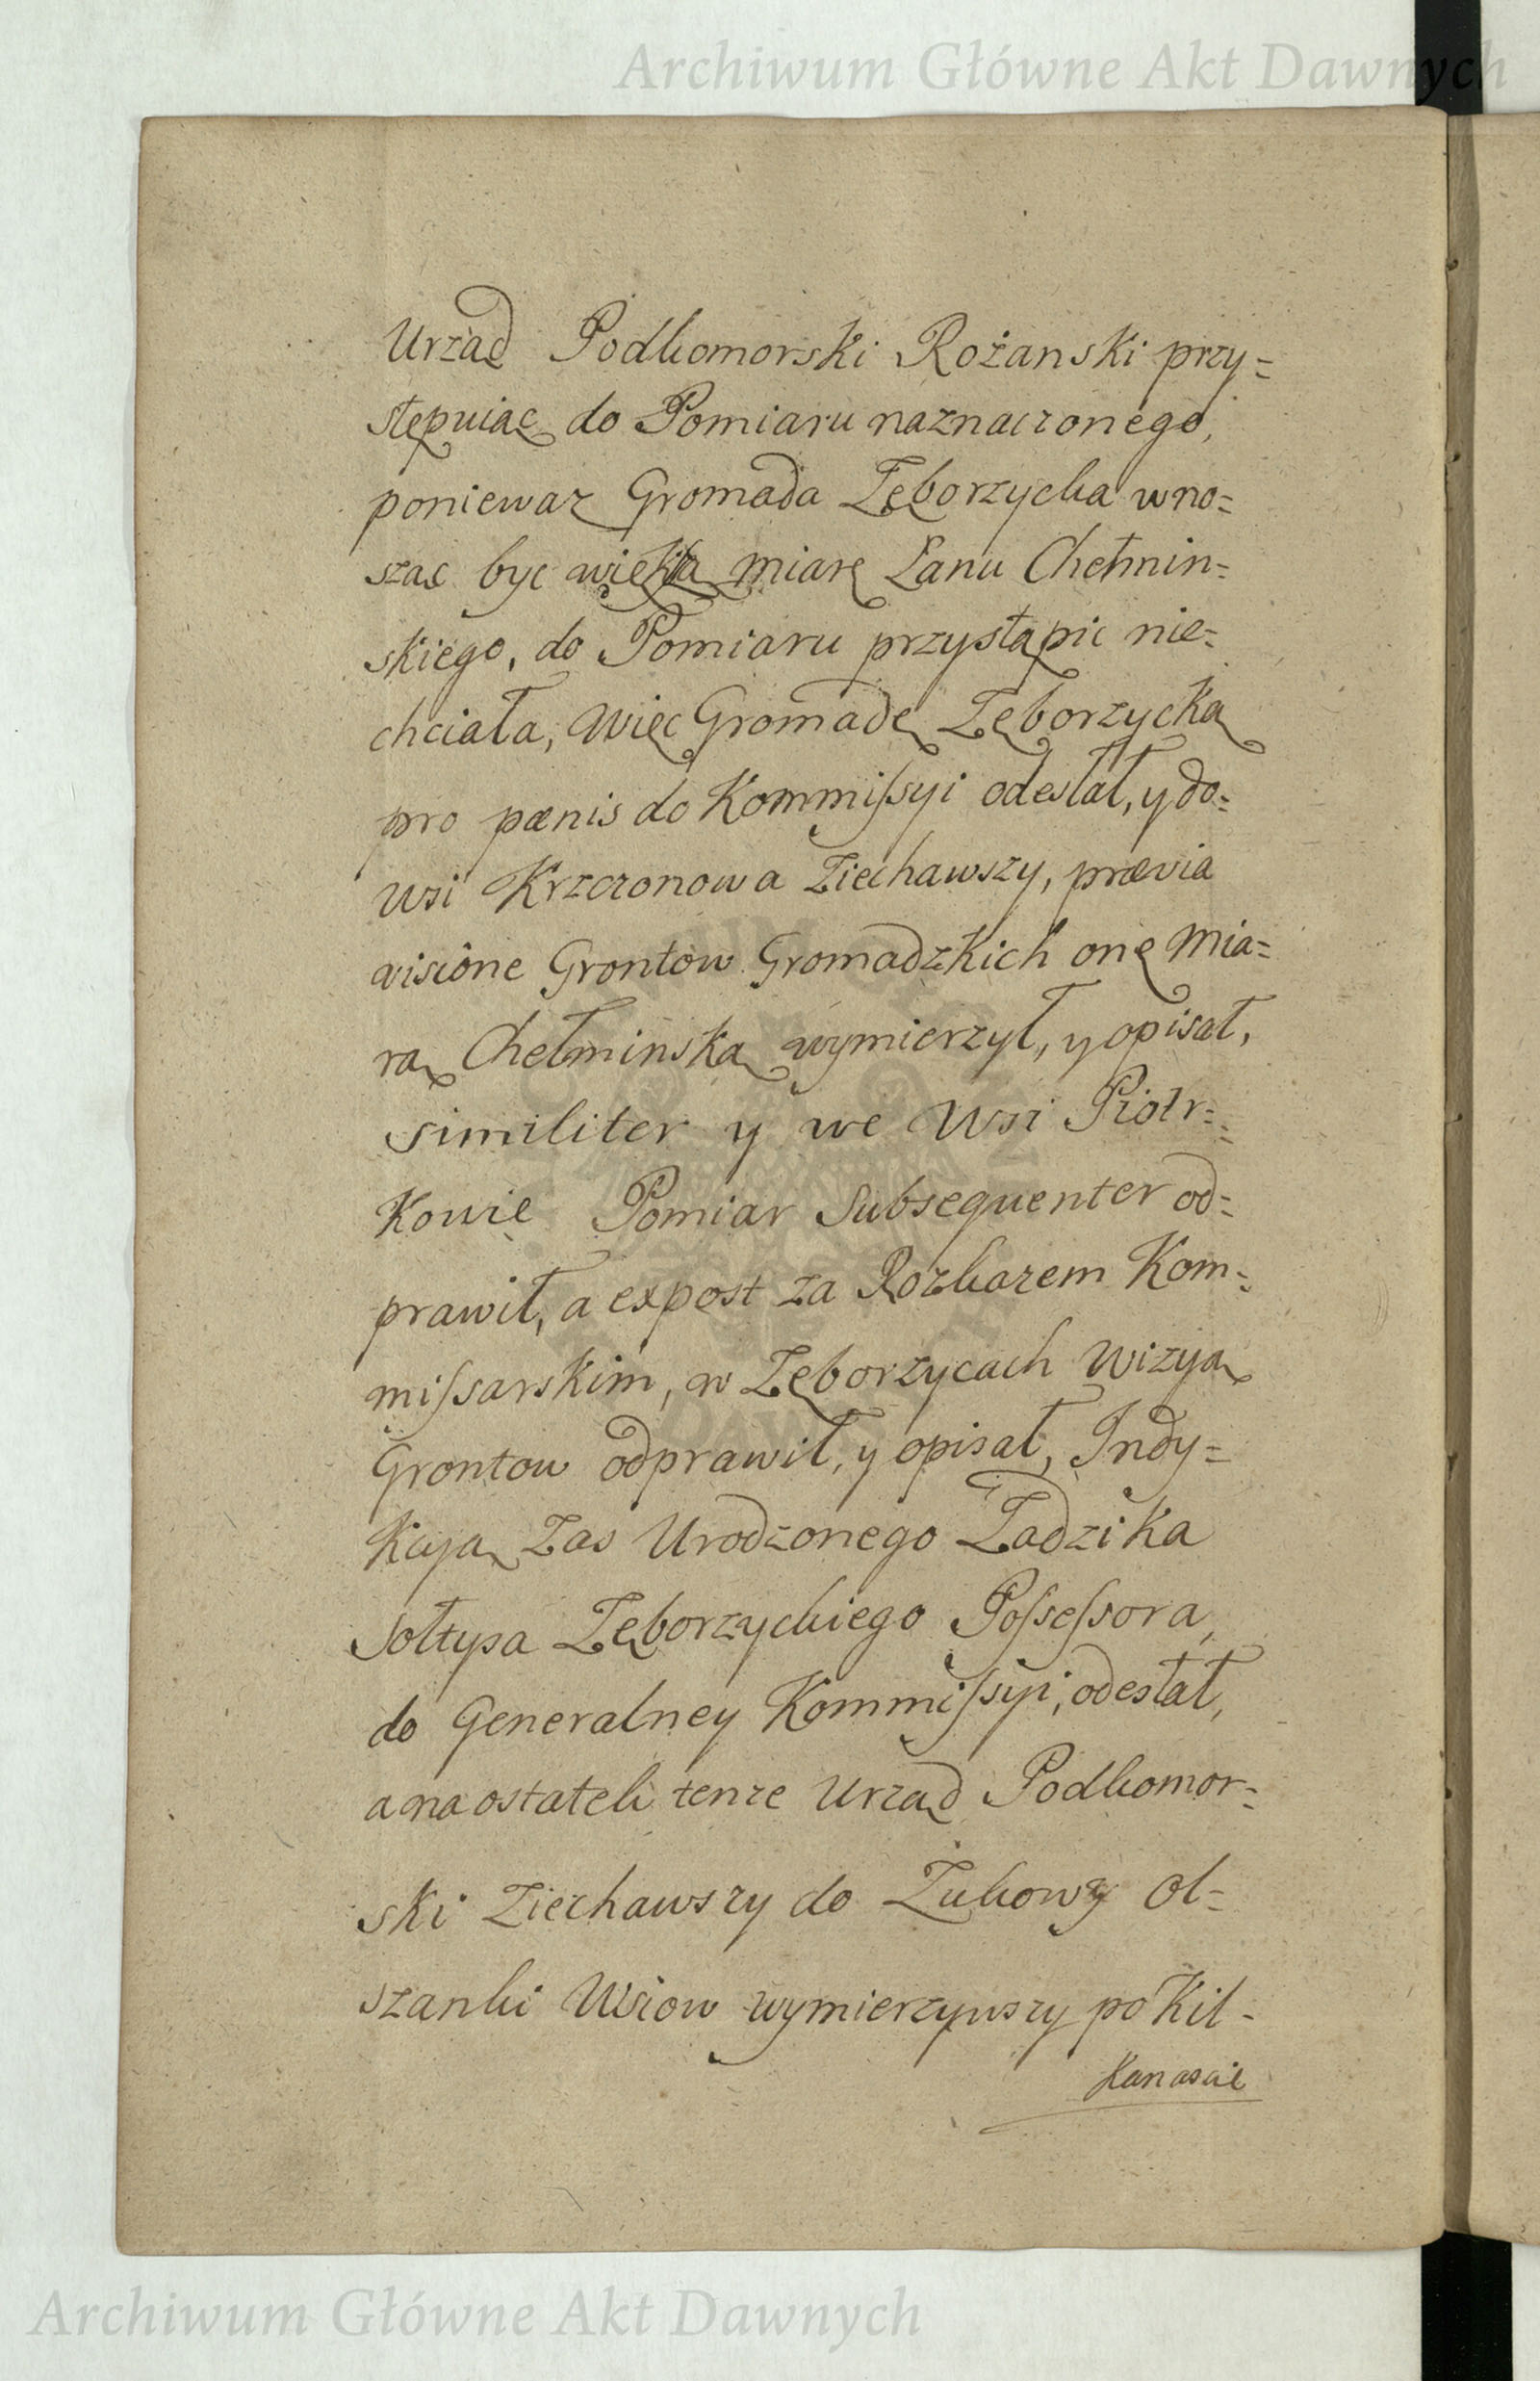 Archiwum Główne Akt Dawnych
Urząd Podkomorski Rożanski przy=
stępuiąc do Pomiaru naznaczonego,
poniewaz Gromada Zęborzycka wno=
sząc byc więkśą miarę Łanu Chełmin=
skiego, do Pomiaru przystąpic nie=
chciała, Więc Gromadę Zęborzycką
pro pœnis do Kommiſsyi odesłał, y do=
wsi Krzczonowa Ziechawszy, prævia
wisióne Grontow Gromadzkich onę Mia=
rą Chełminską wymierzył, y opisał,
similiter y we Wsi Piotr=
Kowie Pomiar Subsequenter od=
prawił, a expost za Rozkazem Kom=
miſsarskim, w Zęborzycach Wizyą
Grontow odprawił, y opisał, Indy=
Kcyą Zas Urodzonego Ładzika
Sołtysa Zęborzyckiego Poſseſsora,
do Generalney Kommiſsyi, odesłał,
a na ostatek tenze Urząd Podkomor=
ski Ziechawszy do Żukowy Ol=
szanki Wsiow wymierzywszy po Kil-
Kanascie
Archiwum Główne Akt Dawnych